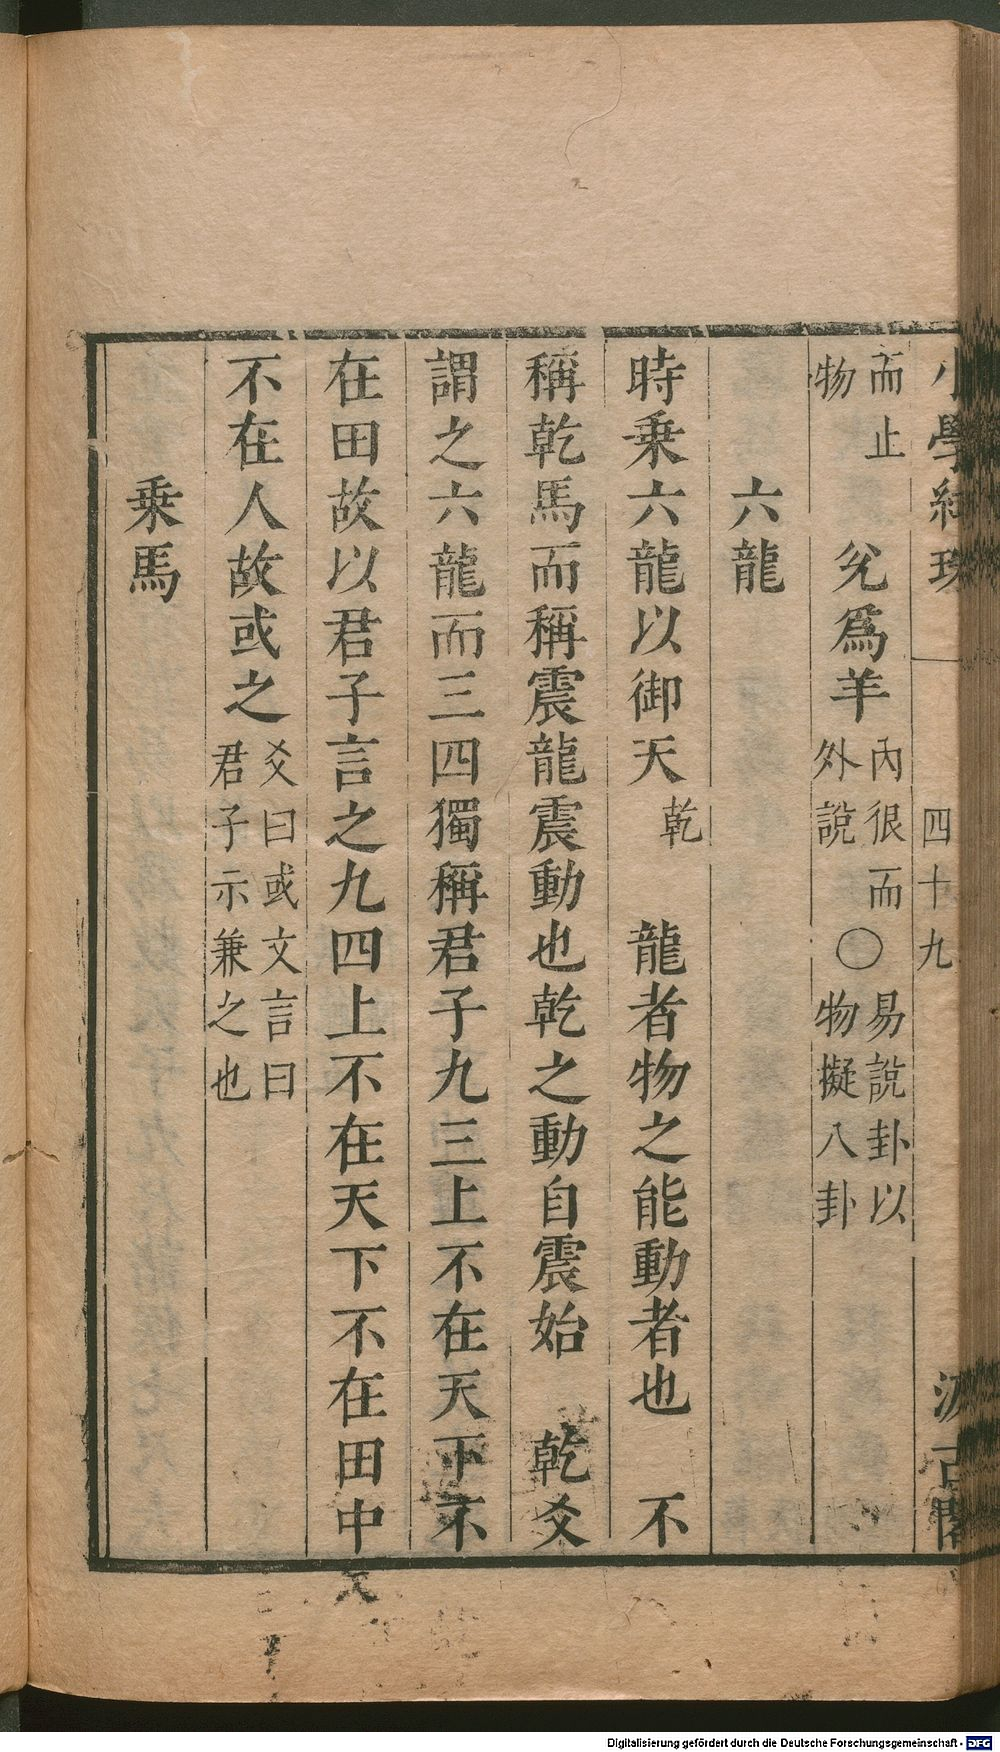 小學紺珠 四十九 汲古閣
而止物 兊爲羊 內很而外說 〇 易說卦以物擬八卦
六龍
時乗六龍以御天 乾 龍者物之能動者也 不
稱乾馬而稱震龍震動也乾之動自震始 乾爻
謂之六龍而三四獨稱君子九三上不在天下不
在田故以君子言之九四上不在天下不在田中
不在人故或之 爻曰或文言曰君子示兼之也
乗馬
Digitalisierung gefördert durch die Deutsche Forschungsgemeinschaft - DFG